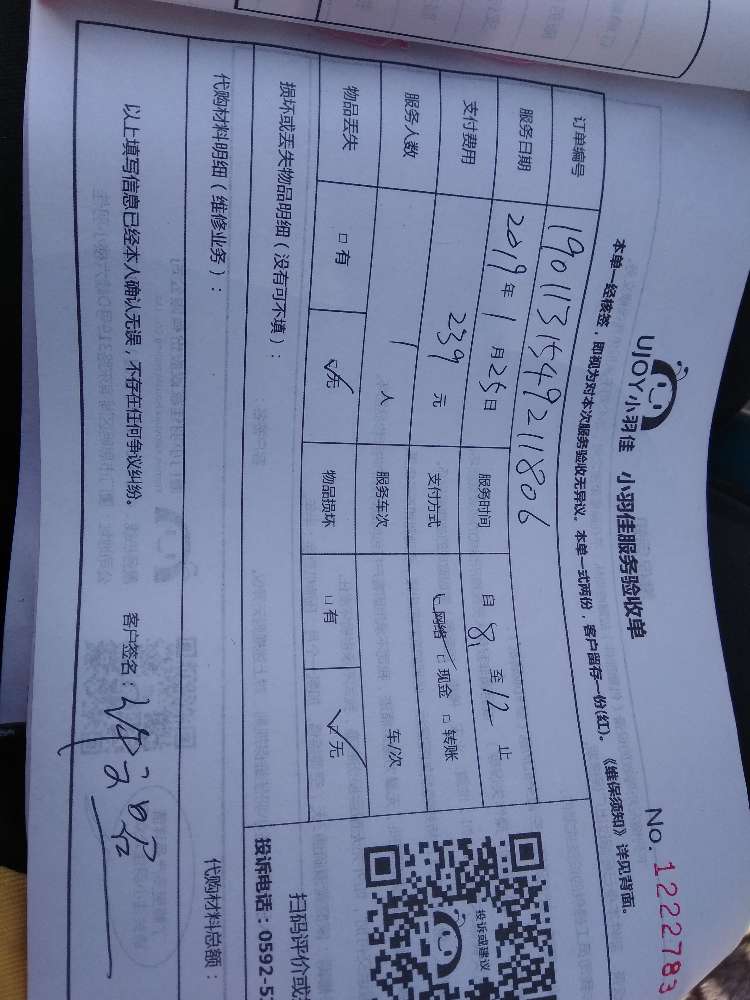 UJOY小羽佳 小羽佳服务验收单
No. 1222783
本单一经核签，即视为对本次服务验收无异议。本单一式两份，客户留存一份(红)。《维保须知》详见背面。
订单编号 1901131549211806
服务日期 2019年1月25日 服务时间 自8至12止
支付费用 239元 支付方式 网络 □现金 □转账
服务人数 1人 服务车次 车/次
物品丢失 □有 ☑无 物品损坏 □有 ☑无
损坏或丢失物品明细（没有可不填）：
投诉或建议
扫码评价或
投诉电话：0592-5
代购材料明细（维修业务）：
代购材料总额：
以上填写信息已经本人确认无误，不存在任何争议纠纷。
客户签名：